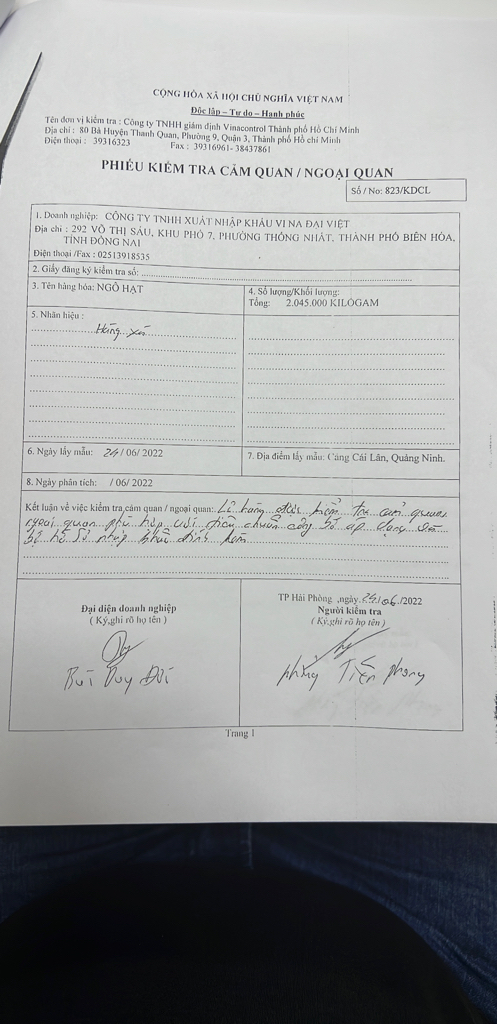 CỘNG HÒA XÃ HỘI CHỦ NGHĨA VIỆT NAM
Độc lập – Tự do – Hạnh phúc
Tên đơn vị kiểm tra : Công ty TNHH giám định Vinacontrol Thành phố Hồ Chí Minh
Địa chỉ : 80 Bà Huyện Thanh Quan, Phường 9, Quận 3, Thành phố Hồ chí Minh
Điện thoại : 39316323 Fax : 39316961- 38437861
PHIẾU KIỂM TRA CẢM QUAN / NGOẠI QUAN
Số / No: 823/KDCL
1. Doanh nghiệp: CÔNG TY TNHH XUẤT NHẬP KHẨU VI NA ĐẠI VIỆT
Địa chỉ : 292 VÕ THỊ SÁU, KHU PHỐ 7, PHƯỜNG THỐNG NHẤT, THÀNH PHỐ BIÊN HÒA,
TỈNH ĐỒNG NAI
Điện thoại /Fax : 02513918535
2. Giấy đăng ký kiểm tra số:
3. Tên hàng hóa: NGÔ HẠT
4. Số lượng/Khối lượng:
Tổng: 2.045.000 KILÔGAM
5. Nhãn hiệu :
Hàng xá
6. Ngày lấy mẫu: 24/06/2022
7. Địa điểm lấy mẫu: Cảng Cái Lân, Quảng Ninh.
8. Ngày phân tích: /06/2022
Kết luận về việc kiểm tra cảm quan / ngoại quan: Lô hàng được kiểm tra cảm quan
ngoại quan phù hợp với tiêu chuẩn công bố áp dụng
bộ hồ sơ nhập khẩu đính kèm
TP Hải Phòng ,ngày 24/06/2022
Đại diện doanh nghiệp
( Ký,ghi rõ họ tên )
Người kiểm tra
( Ký,ghi rõ họ tên )
Bùi Duy Đôi
Phùng Tiến Phong
Trang 1